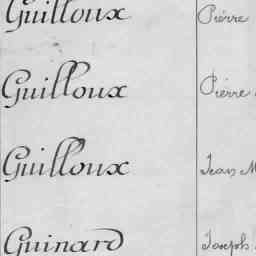 Guilloux Pierre
Guilloux Pierre
Guilloux Jean M
Guinard Joseph